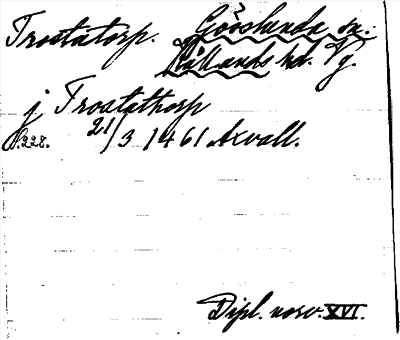 Trostatorp. Gösslunda sn.
Kållands hd. Vg.
j Trostathorp
s.228. 21/3 1461 Axvall.
Dipl. norv. XVI.